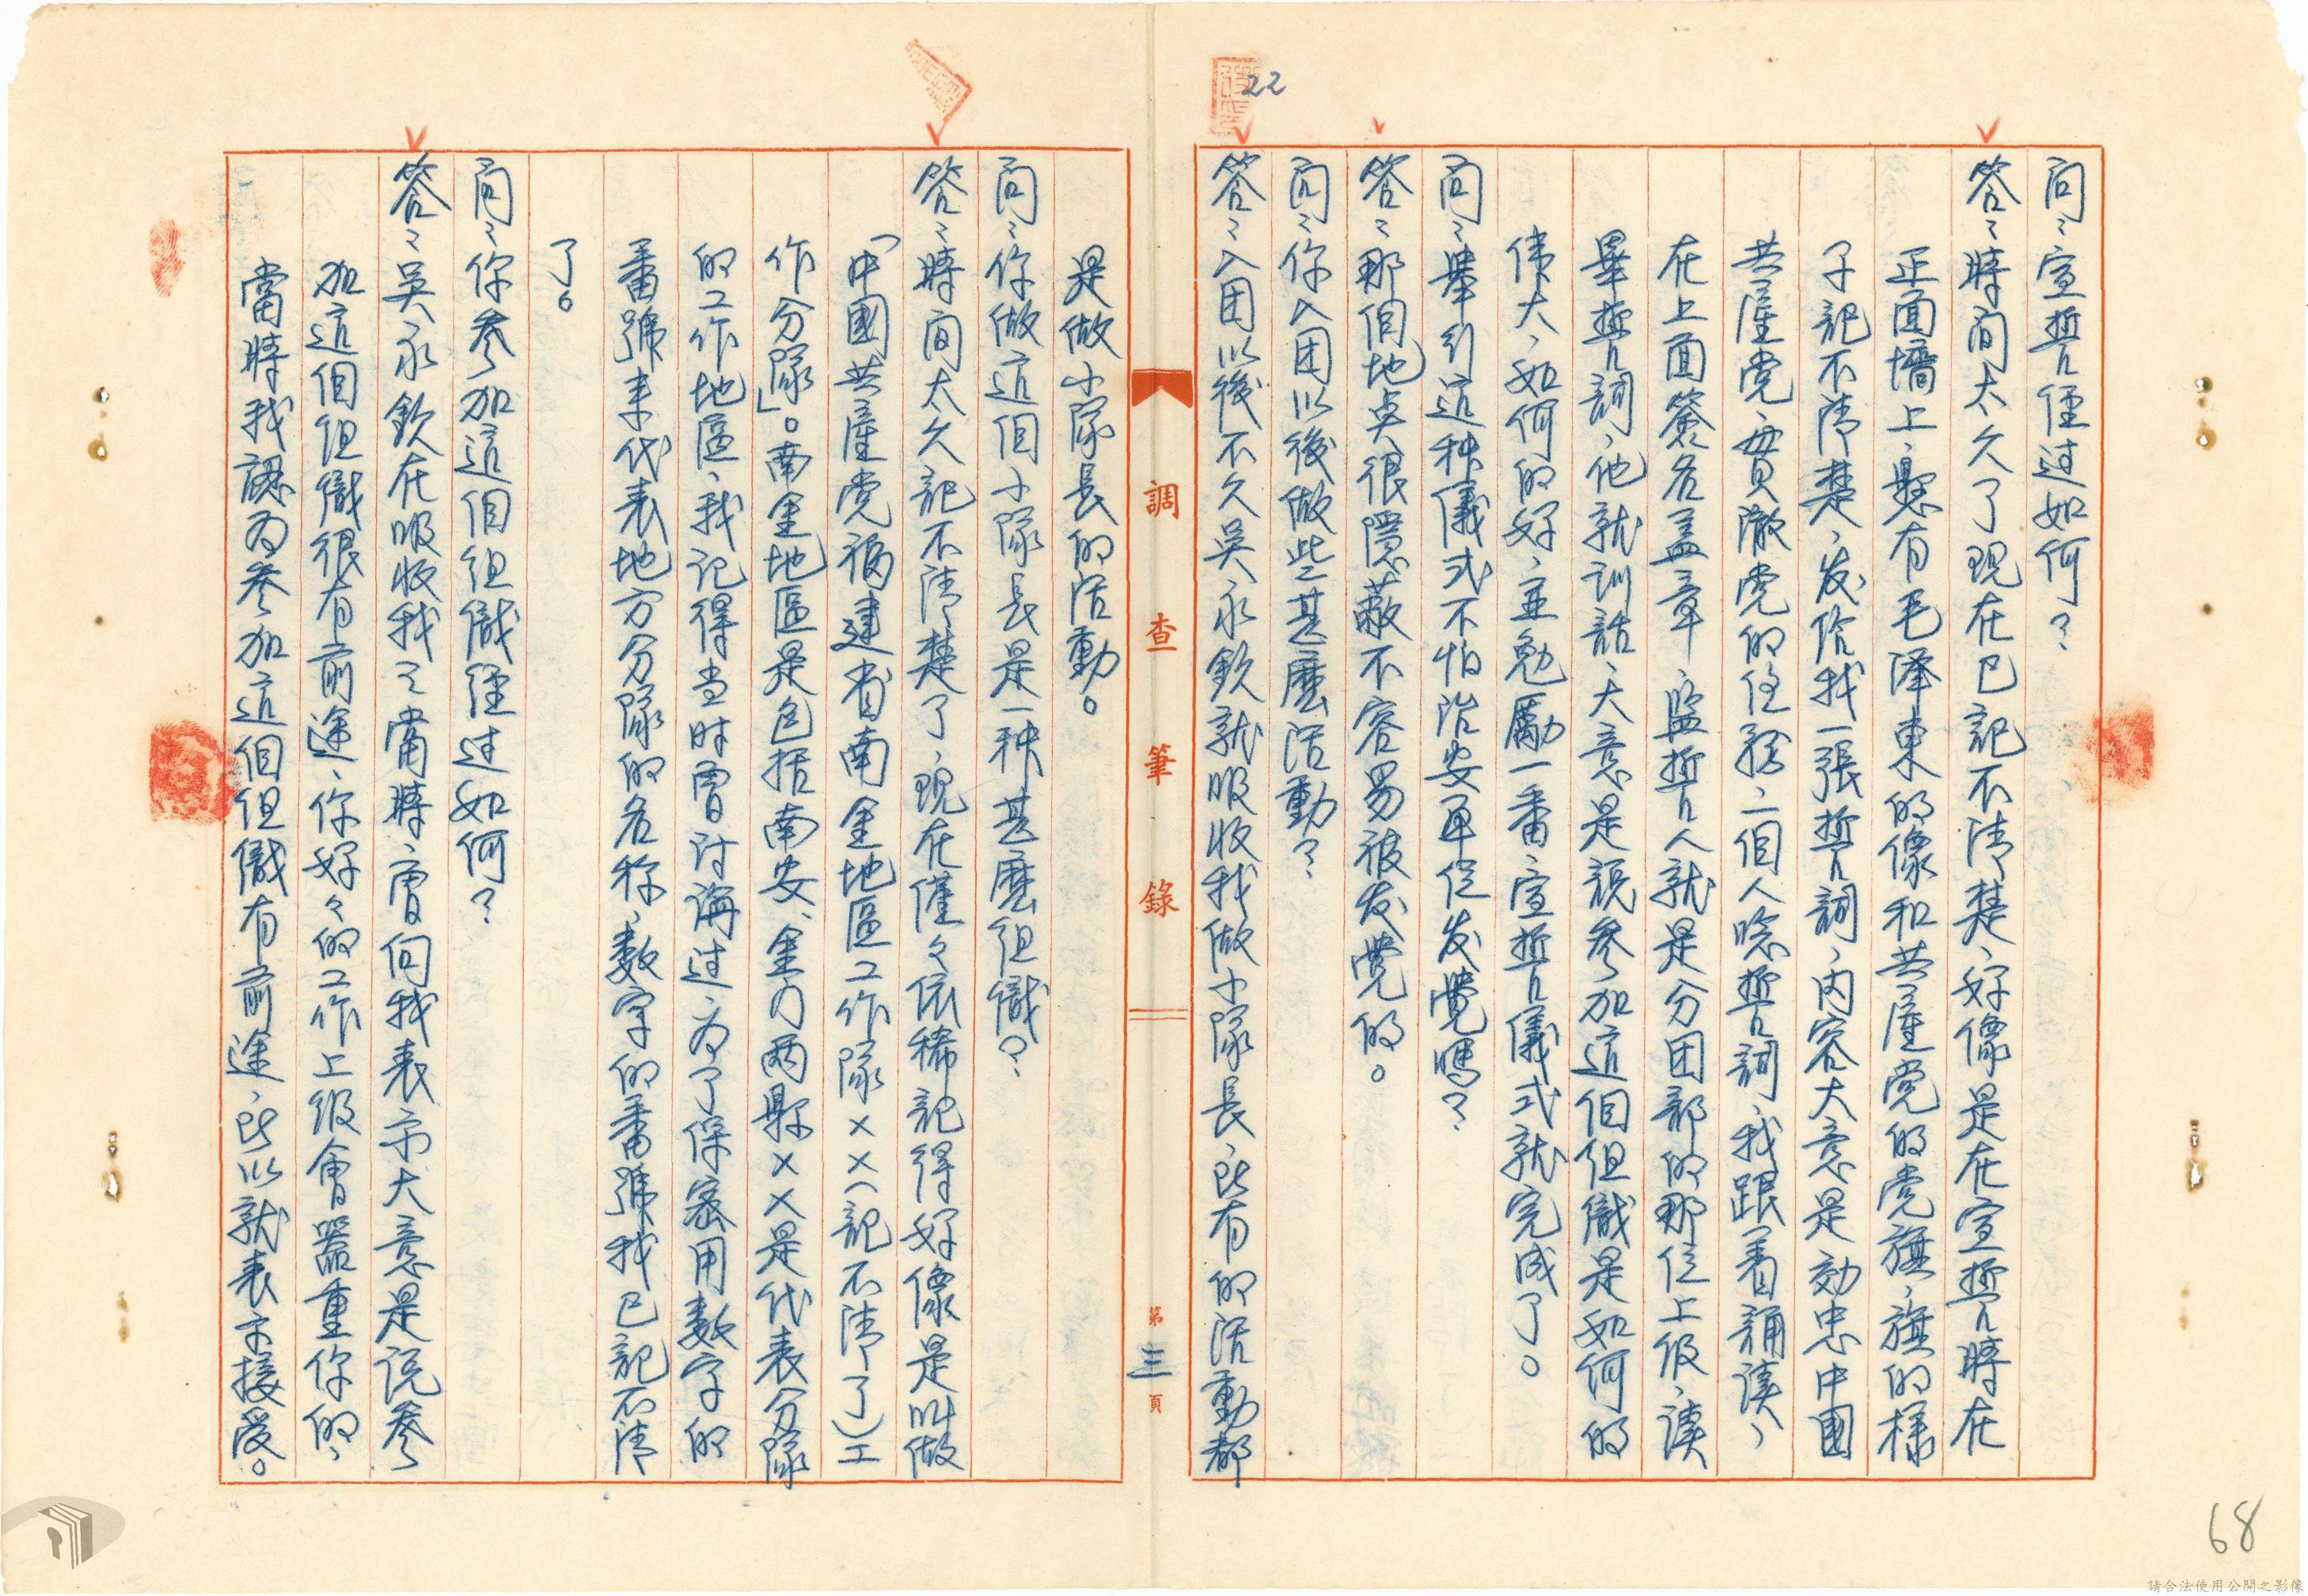 22
問：宣誓經过如何？
答：時间太久了現在已記不清楚，好像是在宣誓時在
正面墻上，懸有毛澤東的像和共産党的党旗，旗的樣
子記不清楚，发给我一張誓詞，内容大意是効忠中國
共産党，貫徹党的任務，二個人唸誓詞，我跟著誦读，
在上面簽名盖章，监誓人就是分团部的那位上级，读
畢誓詞，他就訓話，大意是說参加這個组織是如何的
偉大，如何的好，並勉勵一番宣誓儀式就完成了。
问：舉行这种儀式不怕治安单位发覺嗎？
答：那個地点很隱蔽不容易被发覺的。
问：你入团以後做些甚麽活動？
答：入团以後不久吳永欽就吸收我做小隊長，所有的活動都
調查筆錄
第三頁
是做小隊長的活動。
问：你做這個小隊長是一种甚麽组織？
答：時间太久記不清楚了，現在僅々依稀記得好像是叫做
「中國共産党福建省南金地區工作隊××（記不清了）工
作分隊」。南金地區是包括南安、金门兩縣××是代表分隊
的工作地區，我记得当时曾討論过，为了保密用数字的
番號来代表地方分隊的名称，数字的番號我已記不清
了。
问：你参加這個组織經过如何？
答：吳永欽在吸收我之當時，曾向我表示大意是说参
加這個组織很有前途，你好々的工作上级會器重你的，
當時我認为参加這個组織有前途，所以就表示接受。
68
請合法使用公開之影像